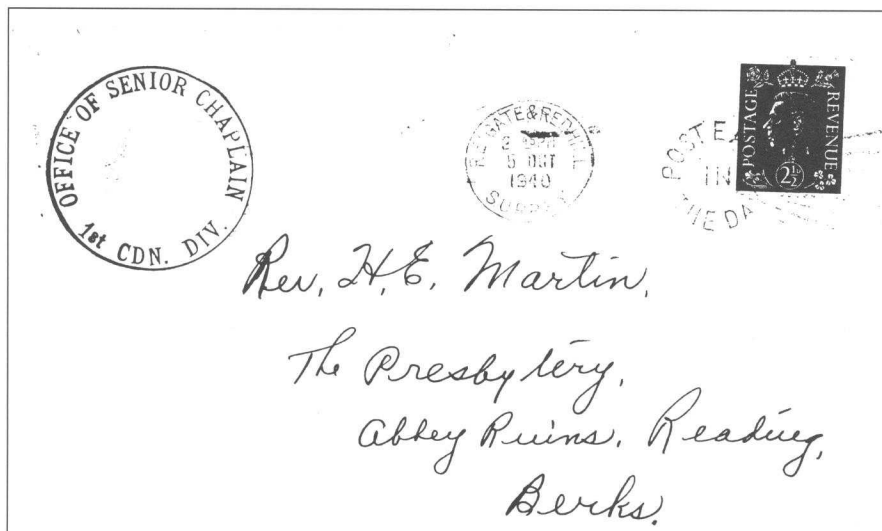 OFFICE OF SENIOR CHAPLAIN
1st CDN. DIV.
GATE & REDHILL
5 OCT
1940
SURREY
POST
IN
THE DAY
POSTAGE REVENUE
2½
Rev. H.E. Martin,
The Presbytery,
Abbey Ruins, Reading,
Berks.